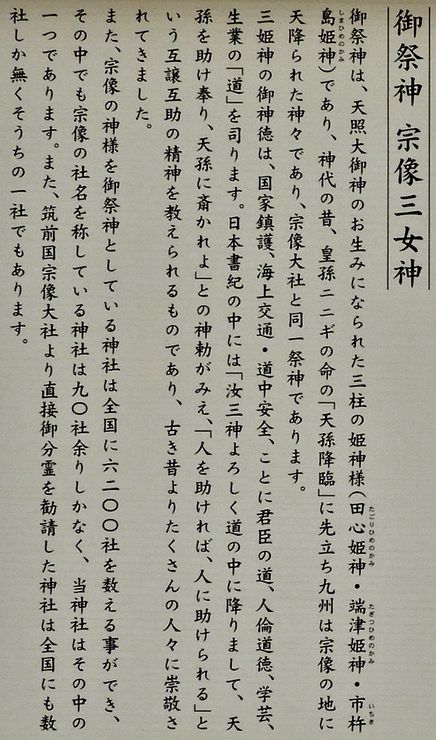 御祭神 宗像三女神
御祭神は、天照大御神のお生みになられた三柱の姫神様(田心姫神・端津姫神・市杵
たごりひめのかみ たぎつひめのかみ いちき
島姫神)であり、神代の昔、皇孫ニニギの命の「天孫降臨」に先立ち九州は宗像の地に
しまひめのかみ
天降られた神々であり、宗像大社と同一祭神であります。
三姫神の御神徳は、国家鎮護、海上交通・道中安全、ことに君臣の道、人倫道徳、学芸、
生業の「道」を司ります。日本書紀の中には「汝三神よろしく道の中に降りまして、天
孫を助け奉り、天孫に斎かれよ」との神勅がみえ、「人を助ければ、人に助けられる」と
いう互譲互助の精神を教えられるものであり、古き昔よりたくさんの人々に崇敬さ
れてきました。
また、宗像の神様を御祭神としている神社は全国に六二〇〇社を数える事ができ、
その中でも宗像の社名を称している神社は九〇社余りしかなく、当神社はその中の
一つであります。また、筑前国宗像大社より直接御分霊を勧請した神社は全国にも数
社しか無くそうちの一社でもあります。